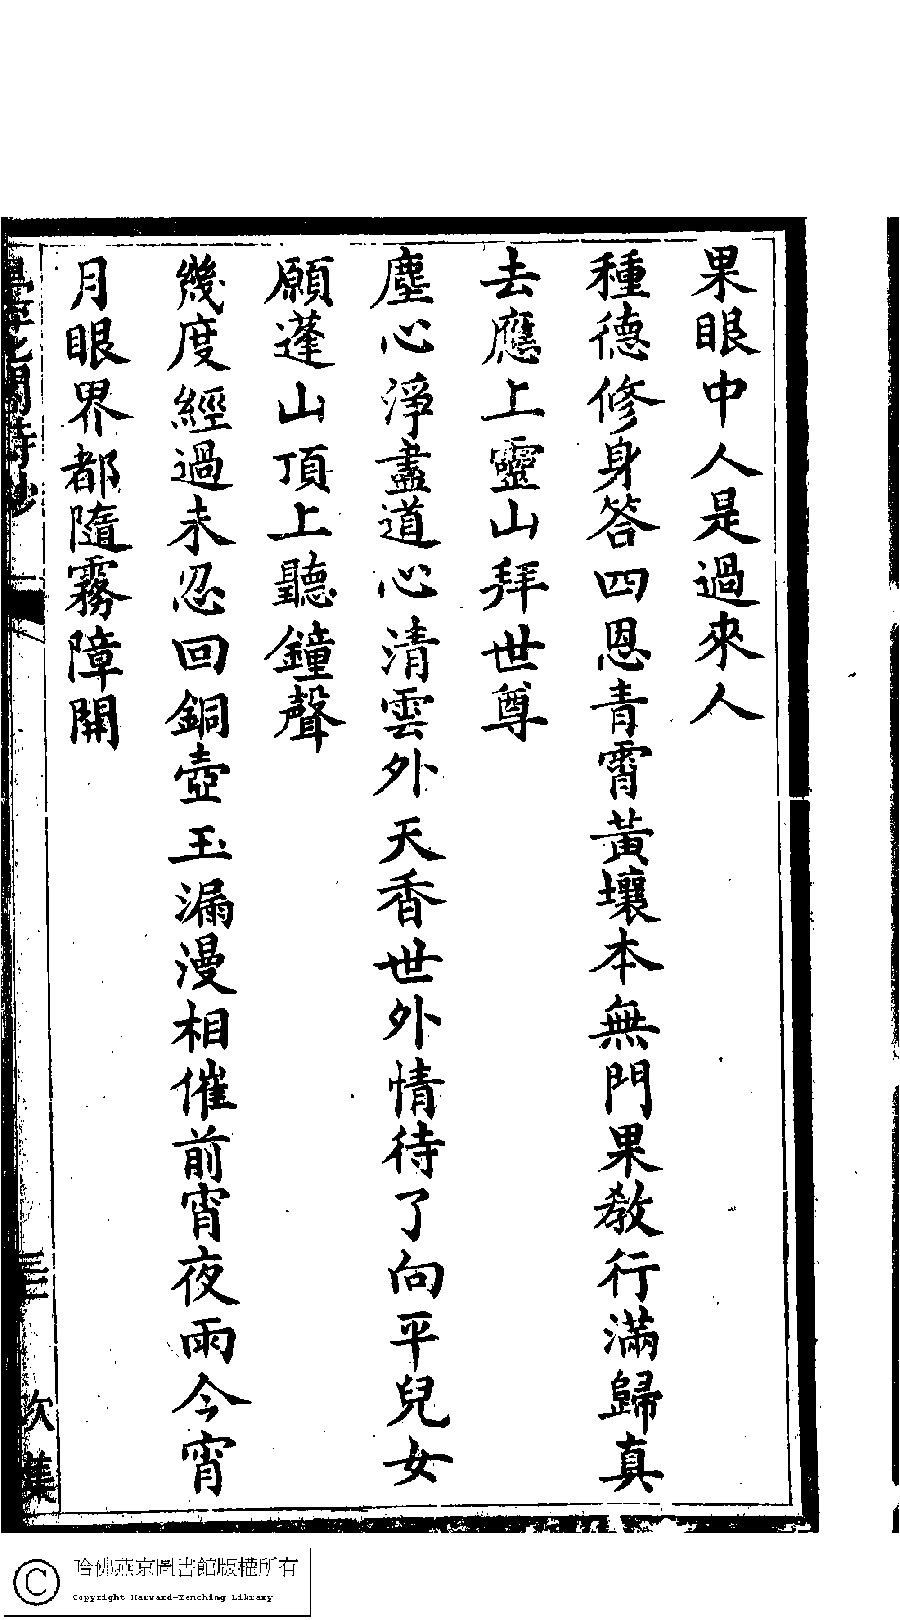 果眼中人是過來人
種德修身答四恩青霄黃壤本無門果教行滿歸真
去應上靈山拜世尊
塵心淨盡道心清雲外天香世外情待了向平兒女
願蓬山頂上聽鐘聲
幾度經過未忍回銅壺玉漏漫相催前宵夜雨今宵
月眼界都隨霧障開
三 次集
哈佛燕京圖書館版權所有
Copyright Harvard-Yenching Library